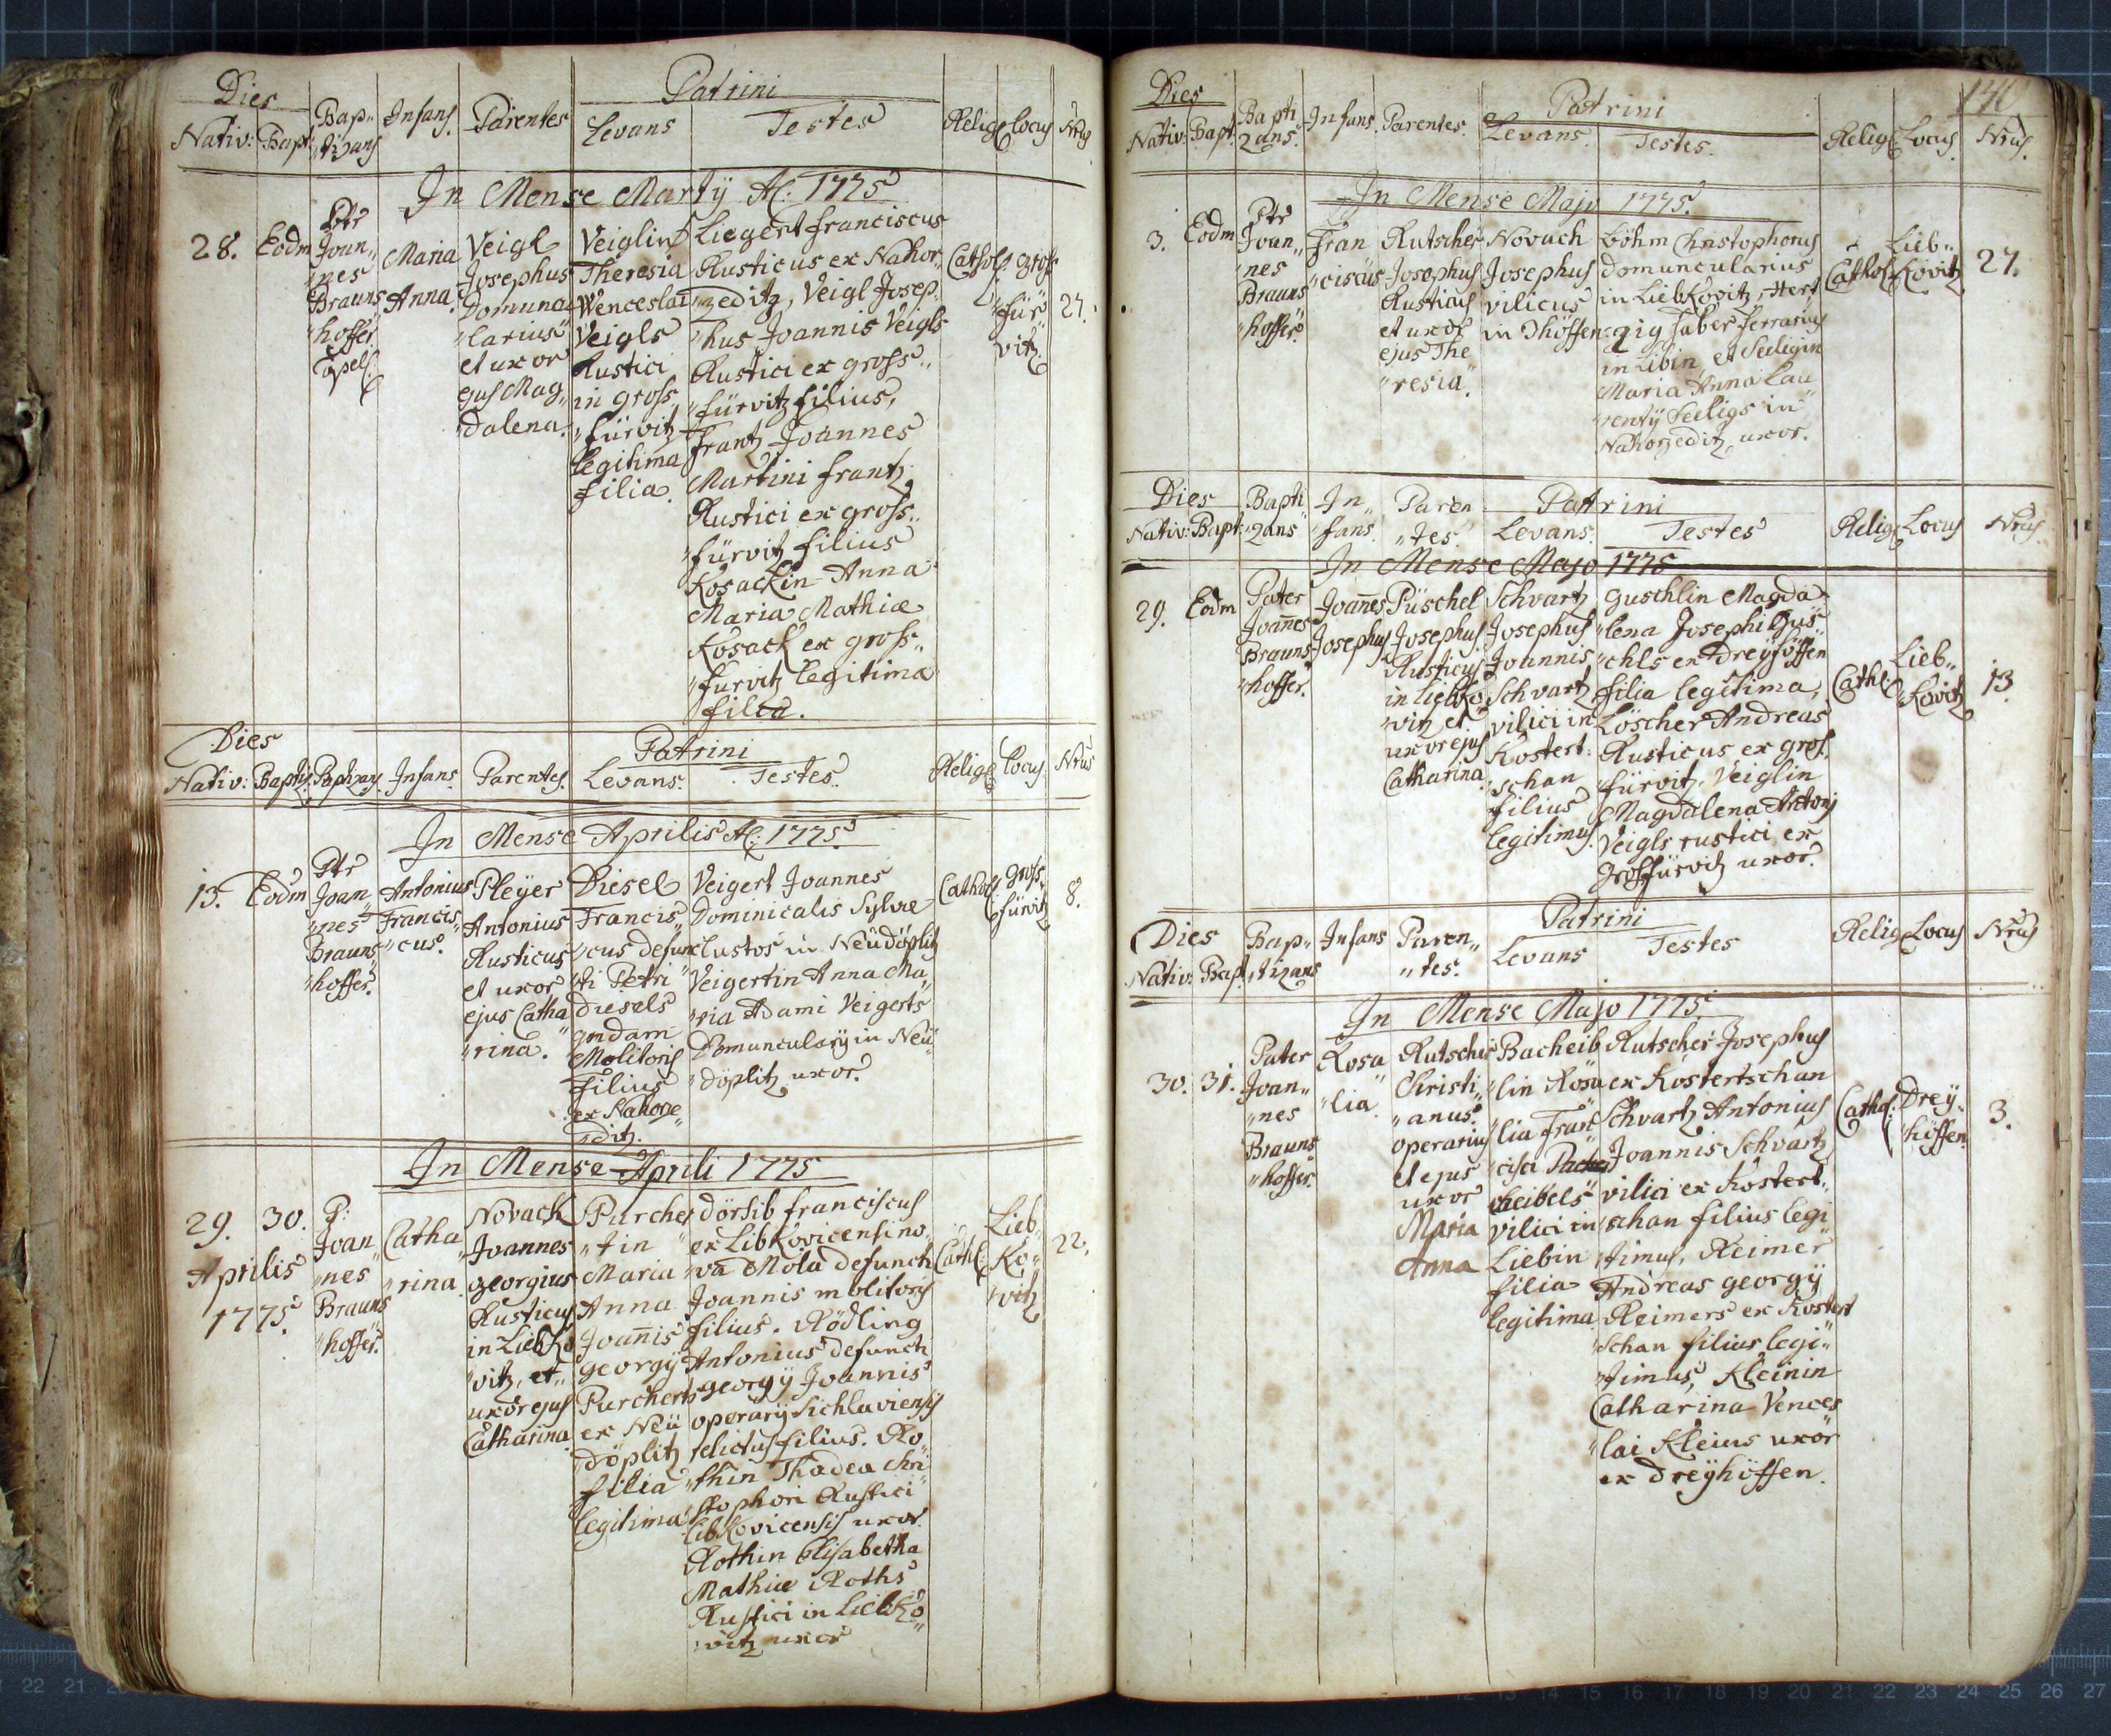 Dies
Nativ: Bapt:
Bap„
„tizans
Infans.
Parentes
Patrini
Levans Testes
Relig: Locus Nrus
In Mense Martÿ A: 1775
28.
Eodm
Ptr
Joan„
„nes
Brauns
„hoffer
Capel:
Maria
Anna.
Veigl
Josephus
Domuncu
„larius
et uxor
ejus Mag„
„dalena.
Veiglin
Theresia
Wenceslai
Veigls
Rustici
in gross
„fürvitz
legitima
filia.
Liegert Franciscus
Rusticus ex Nahor„
„zeditz, Veigl Josep„
„hus Joannis Veigls
Rustici ex gross„
„fürvitz filius,
Frantz Joannes
Martini Frantz
Rustici ex gross„
„fürvitz filius
Kosackin Anna
Maria Mathiæ
Kosack ex gross„
„furvitz legitima
filia.
Cathol:
gross
„für„
vitz
27.
Dies
Nativ: Bapt: Baptizans Infans Parentes
Patrini
Levans. Testes
Relig: Locus Nrus
In Mense Aprilis A: 1775.
13.
Eodm
Ptr
Joan„
„nes
Brauns
„hoffer.
Antonius
Francis„
„cus.
Pleyer
Antonius
Rusticus
et uxor
ejus Catha
„rina.
Diesel
Francis„
„cus defunc
„ti Petri
Diesels
qndam
Molitoris
Filius
ex Nahorze„
„ditz.
Veigert Joannes
Dominicalis Sylvæ
custos in Neüdöplitz
Veigertin Anna Ma„
„ria Adami Veigerts
Domuncularÿ in Neü„
„döplitz uxor.
Cathol:
gross
fürvitz
8.
In Mense Aprili 1775
29.
Aprilis
1775.
30.
P:
Joan„
„nes
Brauns
„hoffer.
Catha„
„rina.
Novack
Joannes
georgius
Rusticus
in Liebko
„vitz, et„
uxor ejus
Catharina.
Purcher
„tin
Maria
Anna
Joanis
georgÿ
Purcherts
ex Neü
döplitz
filia
legitima
dörsib franciscus
ex Libkovicensi no„
„va Mola defuncti
Joannis molitoris
filius. Rödling
Antonius defuncti
georgÿ Joannis
operarÿ Sichlaviensis
relictus filius. Ro„
„thin Thadea Chri„
„stophori Rustici
Libkovicensis uxor.
Rothin Elisabetha
Mathiæ Roths
Rustici in Liebko„
„vitz uxor
Cathl:
Lieb„
Ko„
„vitz
22.
140
Dies
Nativ: Bapt.
Bapti
zans.
Infans. Parentes.
Patrini
Levans. Testes.
Relig: Locus Nrus.
In Mense Majo 1775.
3.
Eodm
Ptr
Joan„
„nes
Brauns
„hoffer.
Fran
„ciscus
Rutscher
Josephus
Rusticus
et uxor
ejus The
„resia.
Novach
Josephus
vilicus
in 3höffen
Böhm Christophorus
domuncularius
in Liebkovitz, Hert
„zig faber ferrarius
in Libin, et Seeligin
Maria Anna Lau
„rentÿ Seeligs in
Nahorzeditz uxor.
Cathol.
Lieb„
„kovitz
27.
Dies
Nativ: Bapt:
Bapti
„zans
In„
„fans.
Paren
„tes.
Patrini
Levans. Testes
Relig: Locus Nrus.
In Mense Majo 1775
29.
Eodm
Pater
Joanes
Brauns
„hoffer.
Joanes
Josephus
Püschel
Josephus
Rusticus
in Liebko
„vitz et
uxor ejus
Catharina
Schvartz
Josephus
Joannis
Schvartz
vilici in
Kostert:
„schan
filius
legitimus.
Guschlin Magda
„lena Josephi Gus
„chls ex Dreyhöffen
filia legitima,
Löscher Andreas
Rusticus ex gross
„fürvitz, Veiglin
Magdalena Antonj
Veigls rustici ex
Grossfürvitz uxor.
Cathl:
Lieb„
„kovitz
13.
Dies
Nativ: Bapt.
Bap„
„tizans
Infans
Paren„
„tes.
Patrini
Levans Testes
Relig: Locus Nrus
In Mense Majo 1775.
30.
31.
Pater
Joan„
„nes
Brauns
„hoffer.
Rosa
„lia.
Rutscher
Christi„
„anus.
operarius
et ejus
uxor
Maria
Anna
Bacheib
„lin Rosa
„lia Fran
„cisci
cheibels
vilici in
Liebin
filia
legitima
Rutscher Josephus
ex Kostertschan
Schvartz Antonius
Joannis Schvartz
vilici ex Kostert„
„schan filius legi
„timus, Reimer
Andreas georgÿ
Reimers ex Kostert
„schan filius legi„
„timus, Kleinin
Catharina Vences
„lai Kleins uxor
ex Dreÿhöffen.
Cathol:
Dreÿ„
„höffen.
3.